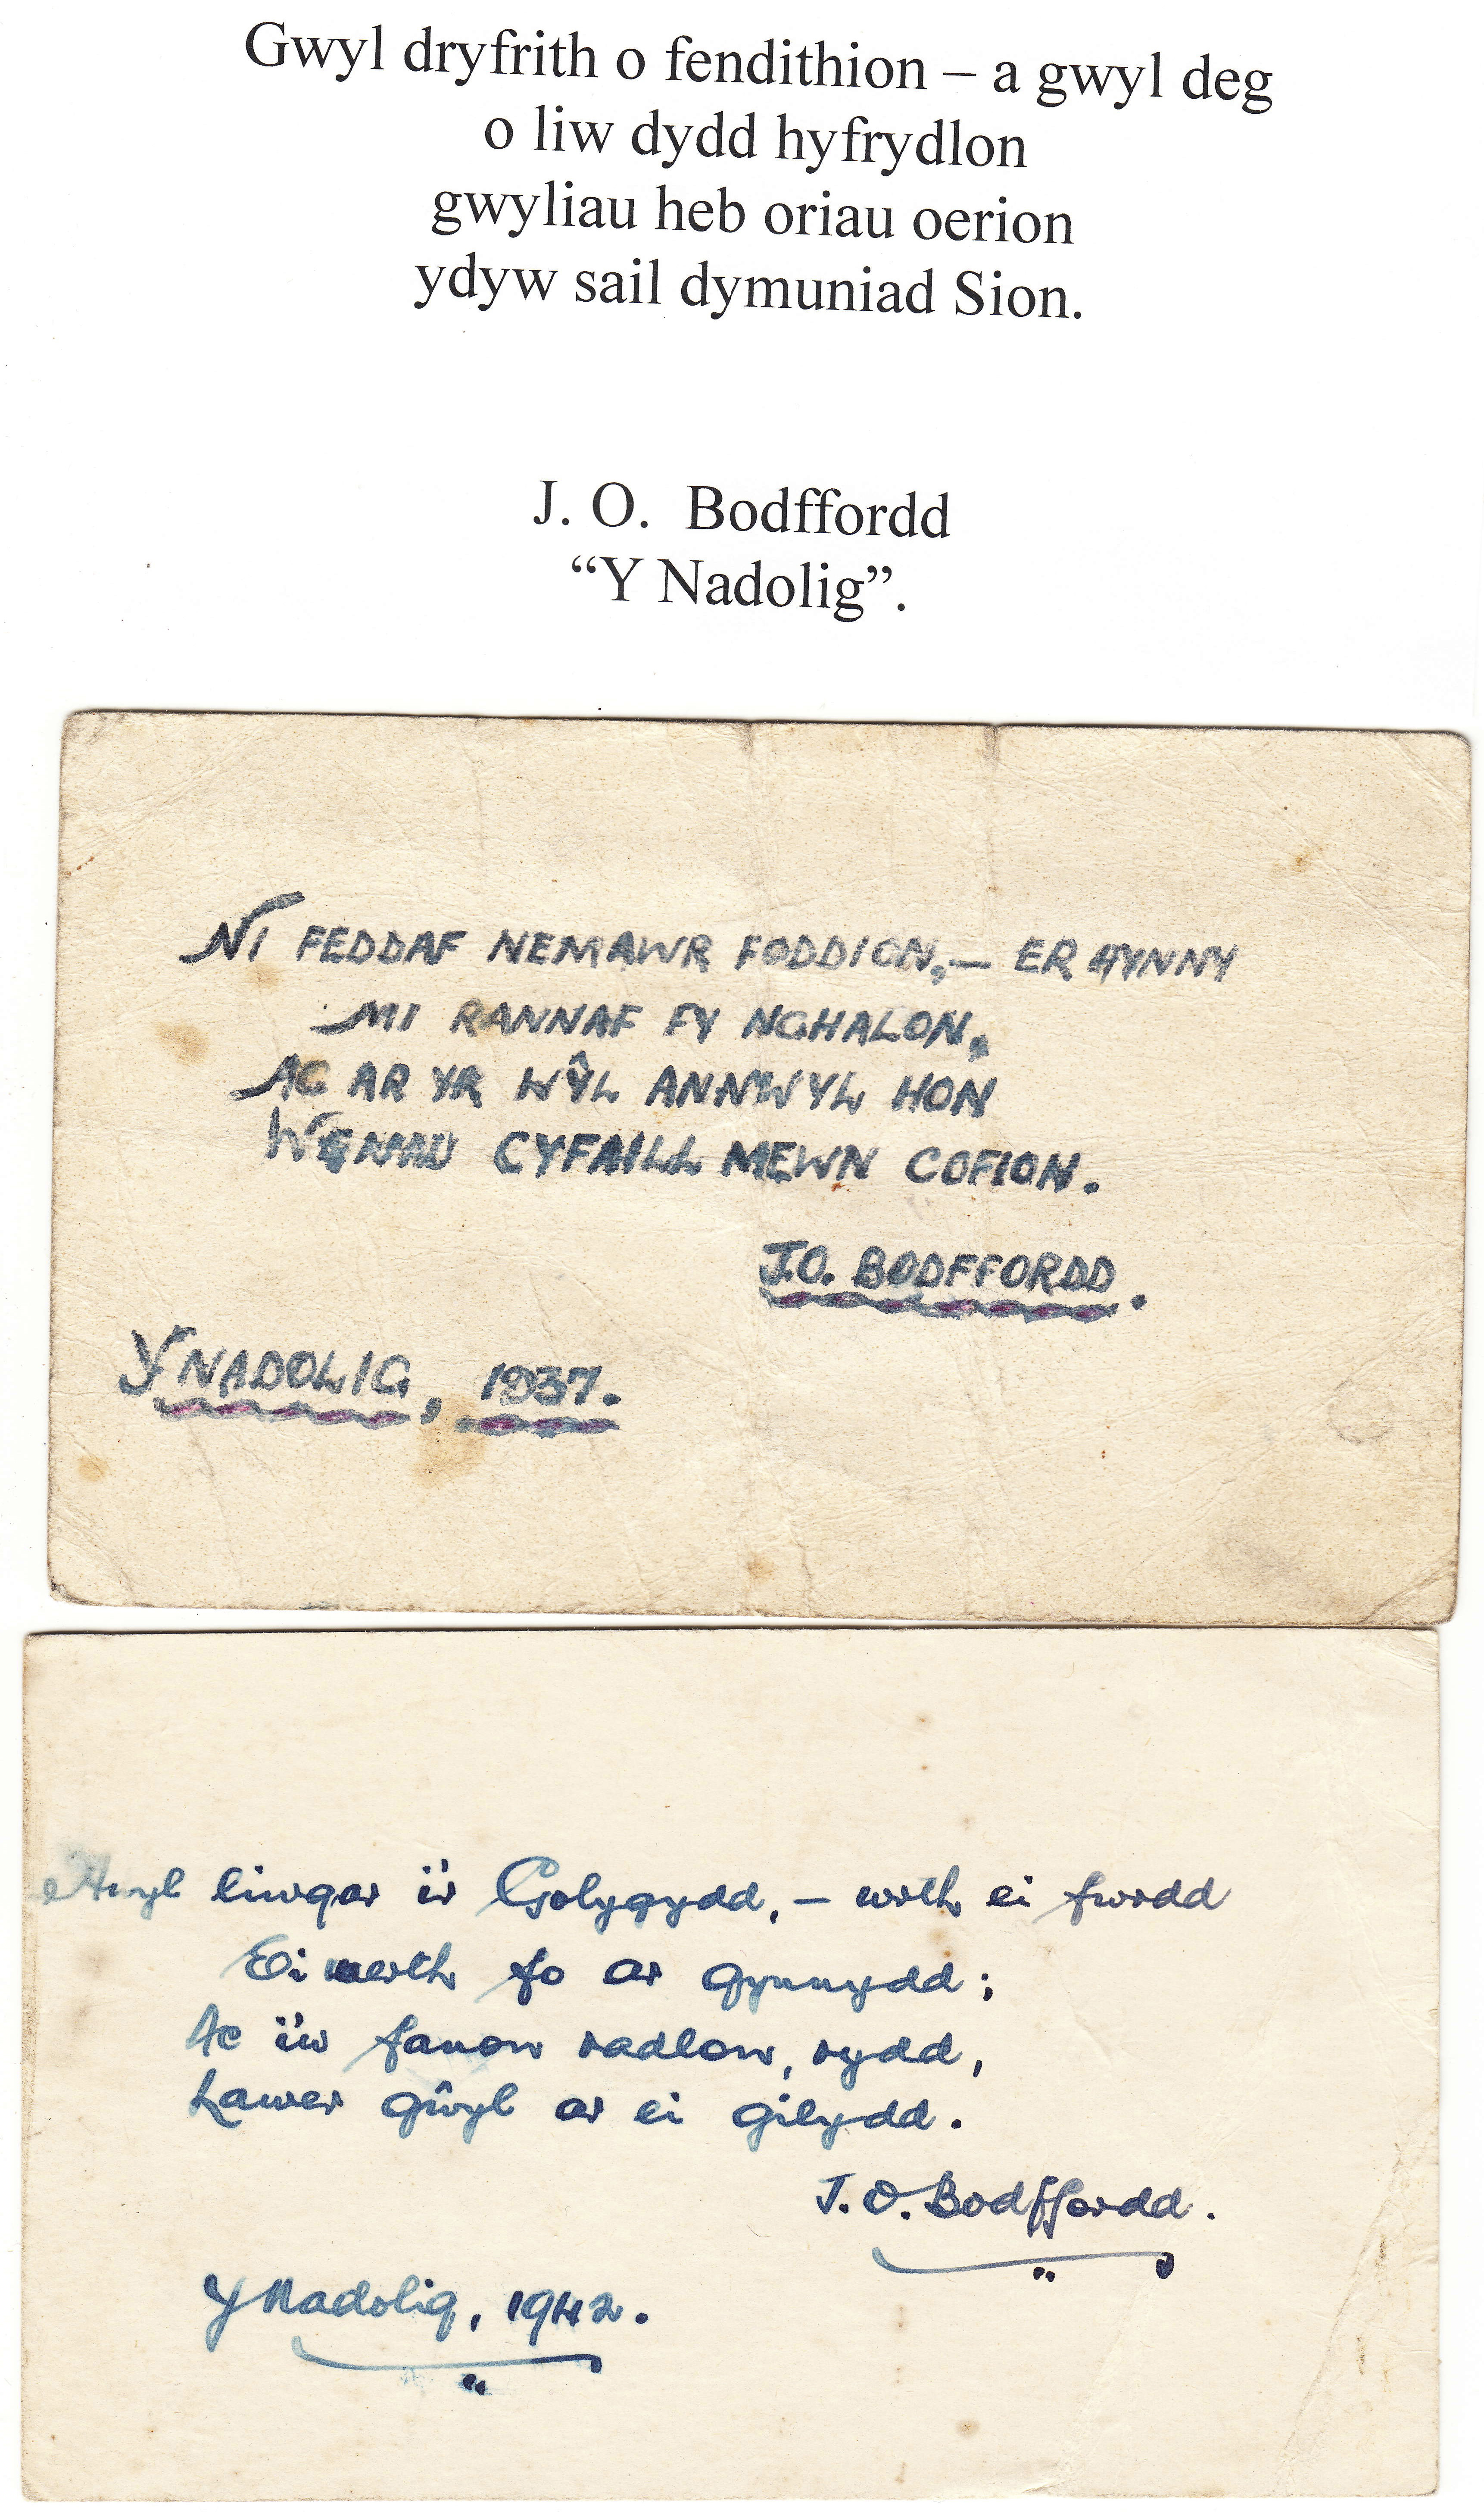 Gwyl dryfrith o fendithion – a gwyl deg
o liw dydd hyfrydlon
gwyliau heb oriau oerion
ydyw sail dymuniad Sion.
J. O. Bodffordd
“Y Nadolig”.
NI FEDDAF NEMAWR FODDION,— ER HYNNY
MI RANNAF FY NGHALON,
AC AR YR WŶL ANNWYL HON
WENAU CYFAILL MEWN COFION.
J.O. BODFFORDD.
Y NADOLIG, 1937.
liwgar i'r Golygydd, – wrth ei fwrdd
Ei nerth fo ar gynnydd;
Ac i'w fanon radlon, rydd,
Lawer gŵyl ar ei gilydd.
J. O. Bodffordd.
Y Nadolig, 1942.